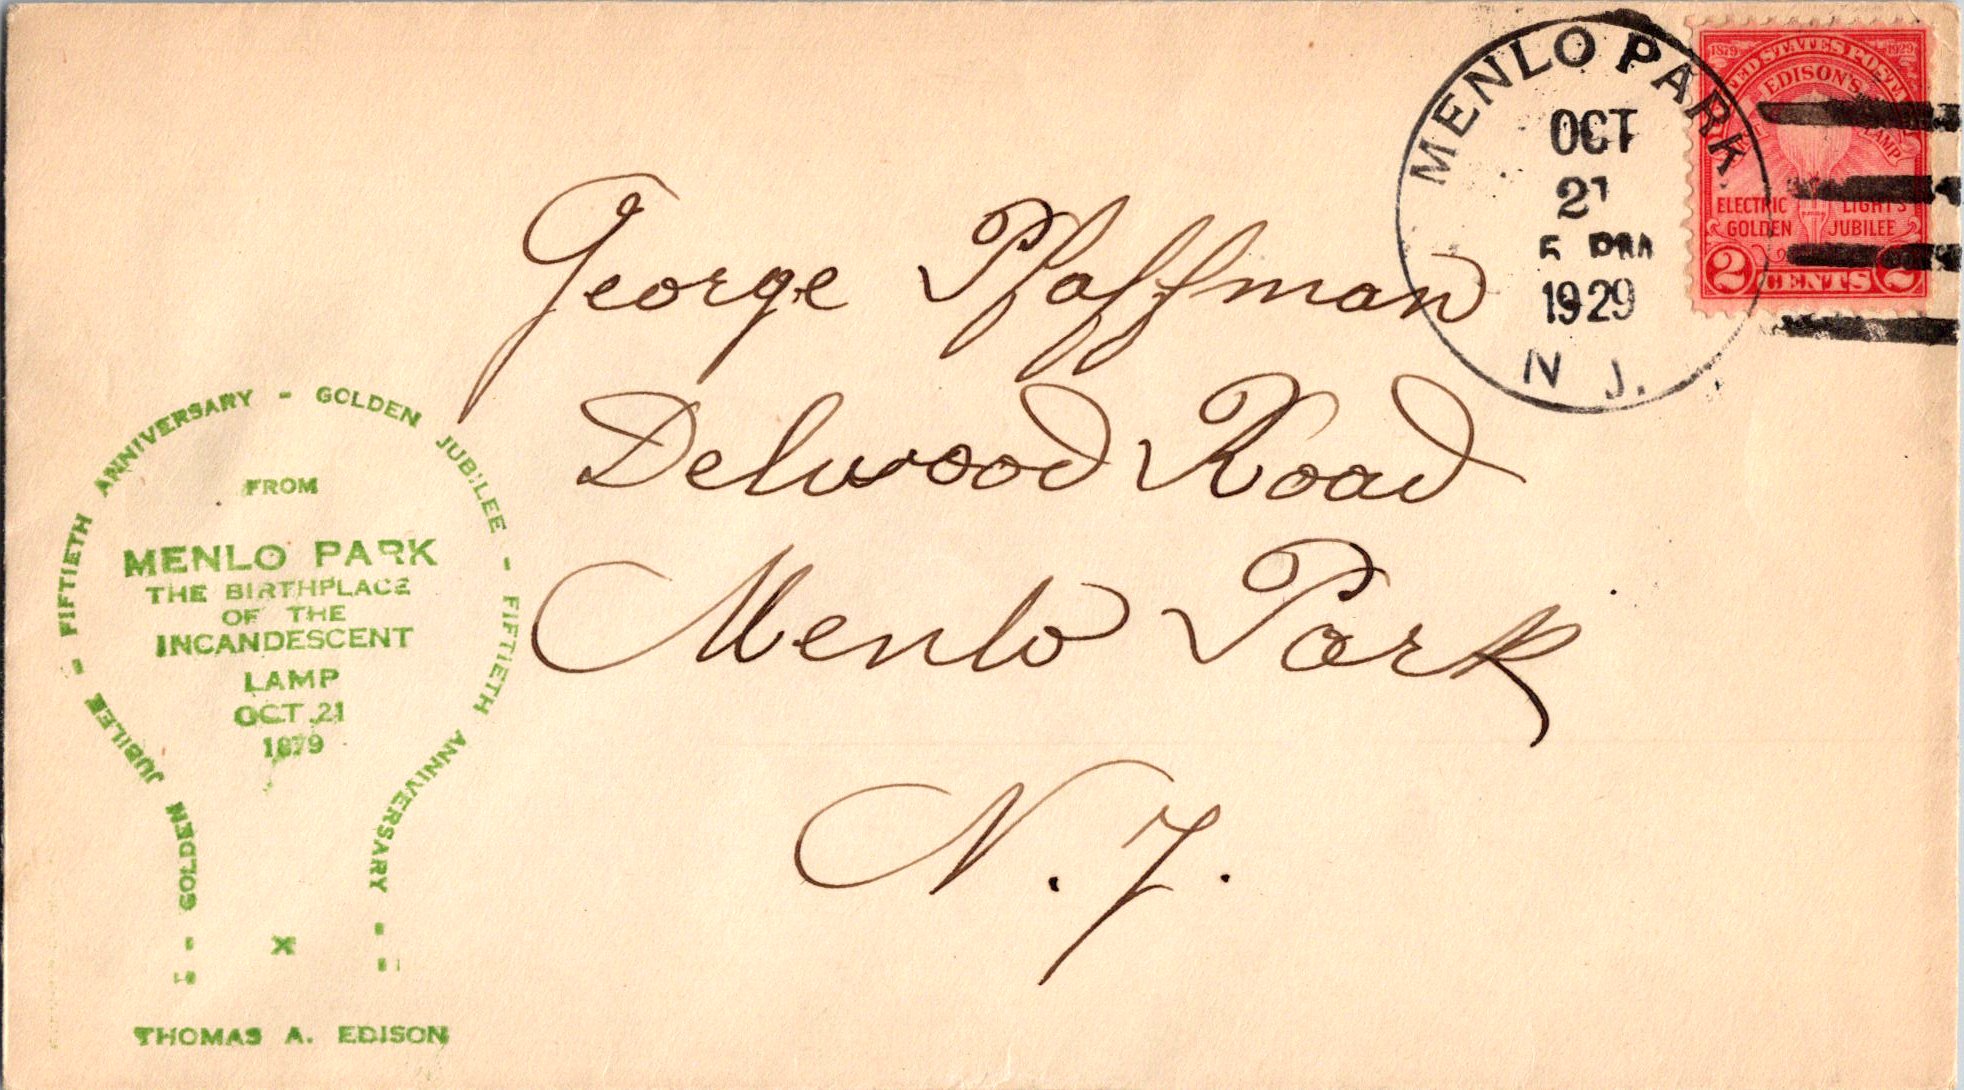 MENLO PARK
OCT
21
5 PM
1929
N J.
1879 UNITED STATES POSTAGE 1929
EDISON'S
LAMP
ELECTRIC LIGHT'S
GOLDEN JUBILEE
2 CENTS 2
George Pfaffman
Delwood Road
Menlo Park
N. J.
GOLDEN JUBILEE - FIFTIETH ANNIVERSARY - GOLDEN JUBILEE - FIFTIETH ANNIVERSARY -
FROM
MENLO PARK
THE BIRTHPLACE
OF THE
INCANDESCENT
LAMP
OCT. 21
1879
X
THOMAS A. EDISON